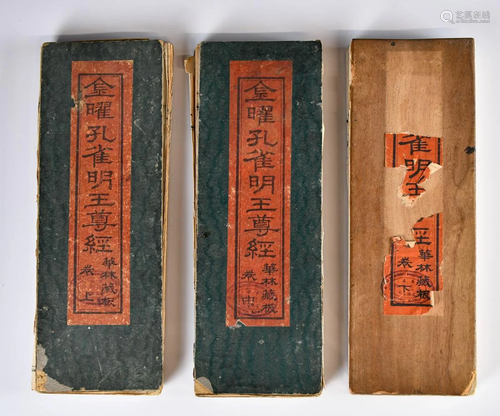 金曜孔雀明王尊經
華林藏板
卷上
金曜孔雀明王尊經
華林藏板
卷中
雀明
華林藏板
卷下